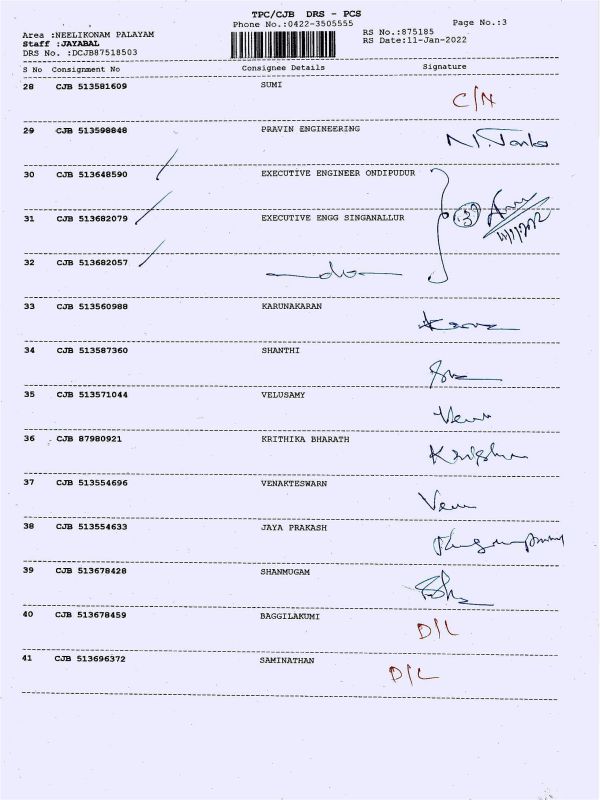 TPC/CJB DRS - PCS
Phone No.:0422-3505555
Page No.:3
Area :NEELIKONAM PALAYAM
Staff :JAYABAL
DRS No. :DCJB87518503
RS No.:875185
RS Date:11-Jan-2022
S No Consignment No Consignee Details Signature
28 CJB 513581609 SUMI C/N
29 CJB 513598848 PRAVIN ENGINEERING
30 CJB 513648590 EXECUTIVE ENGINEER ONDIPUDUR
31 CJB 513682079 EXECUTIVE ENGG SINGANALLUR 3
32 CJB 513682057 do
33 CJB 513560988 KARUNAKARAN
34 CJB 513587360 SHANTHI
35 CJB 513571044 VELUSAMY
36 CJB 87980921 KRITHIKA BHARATH
37 CJB 513554696 VENAKTESWARN
38 CJB 513554633 JAYA PRAKASH
39 CJB 513678428 SHANMUGAM
40 CJB 513678459 BAGGILAKUMI D/L
41 CJB 513696372 SAMINATHAN D/L